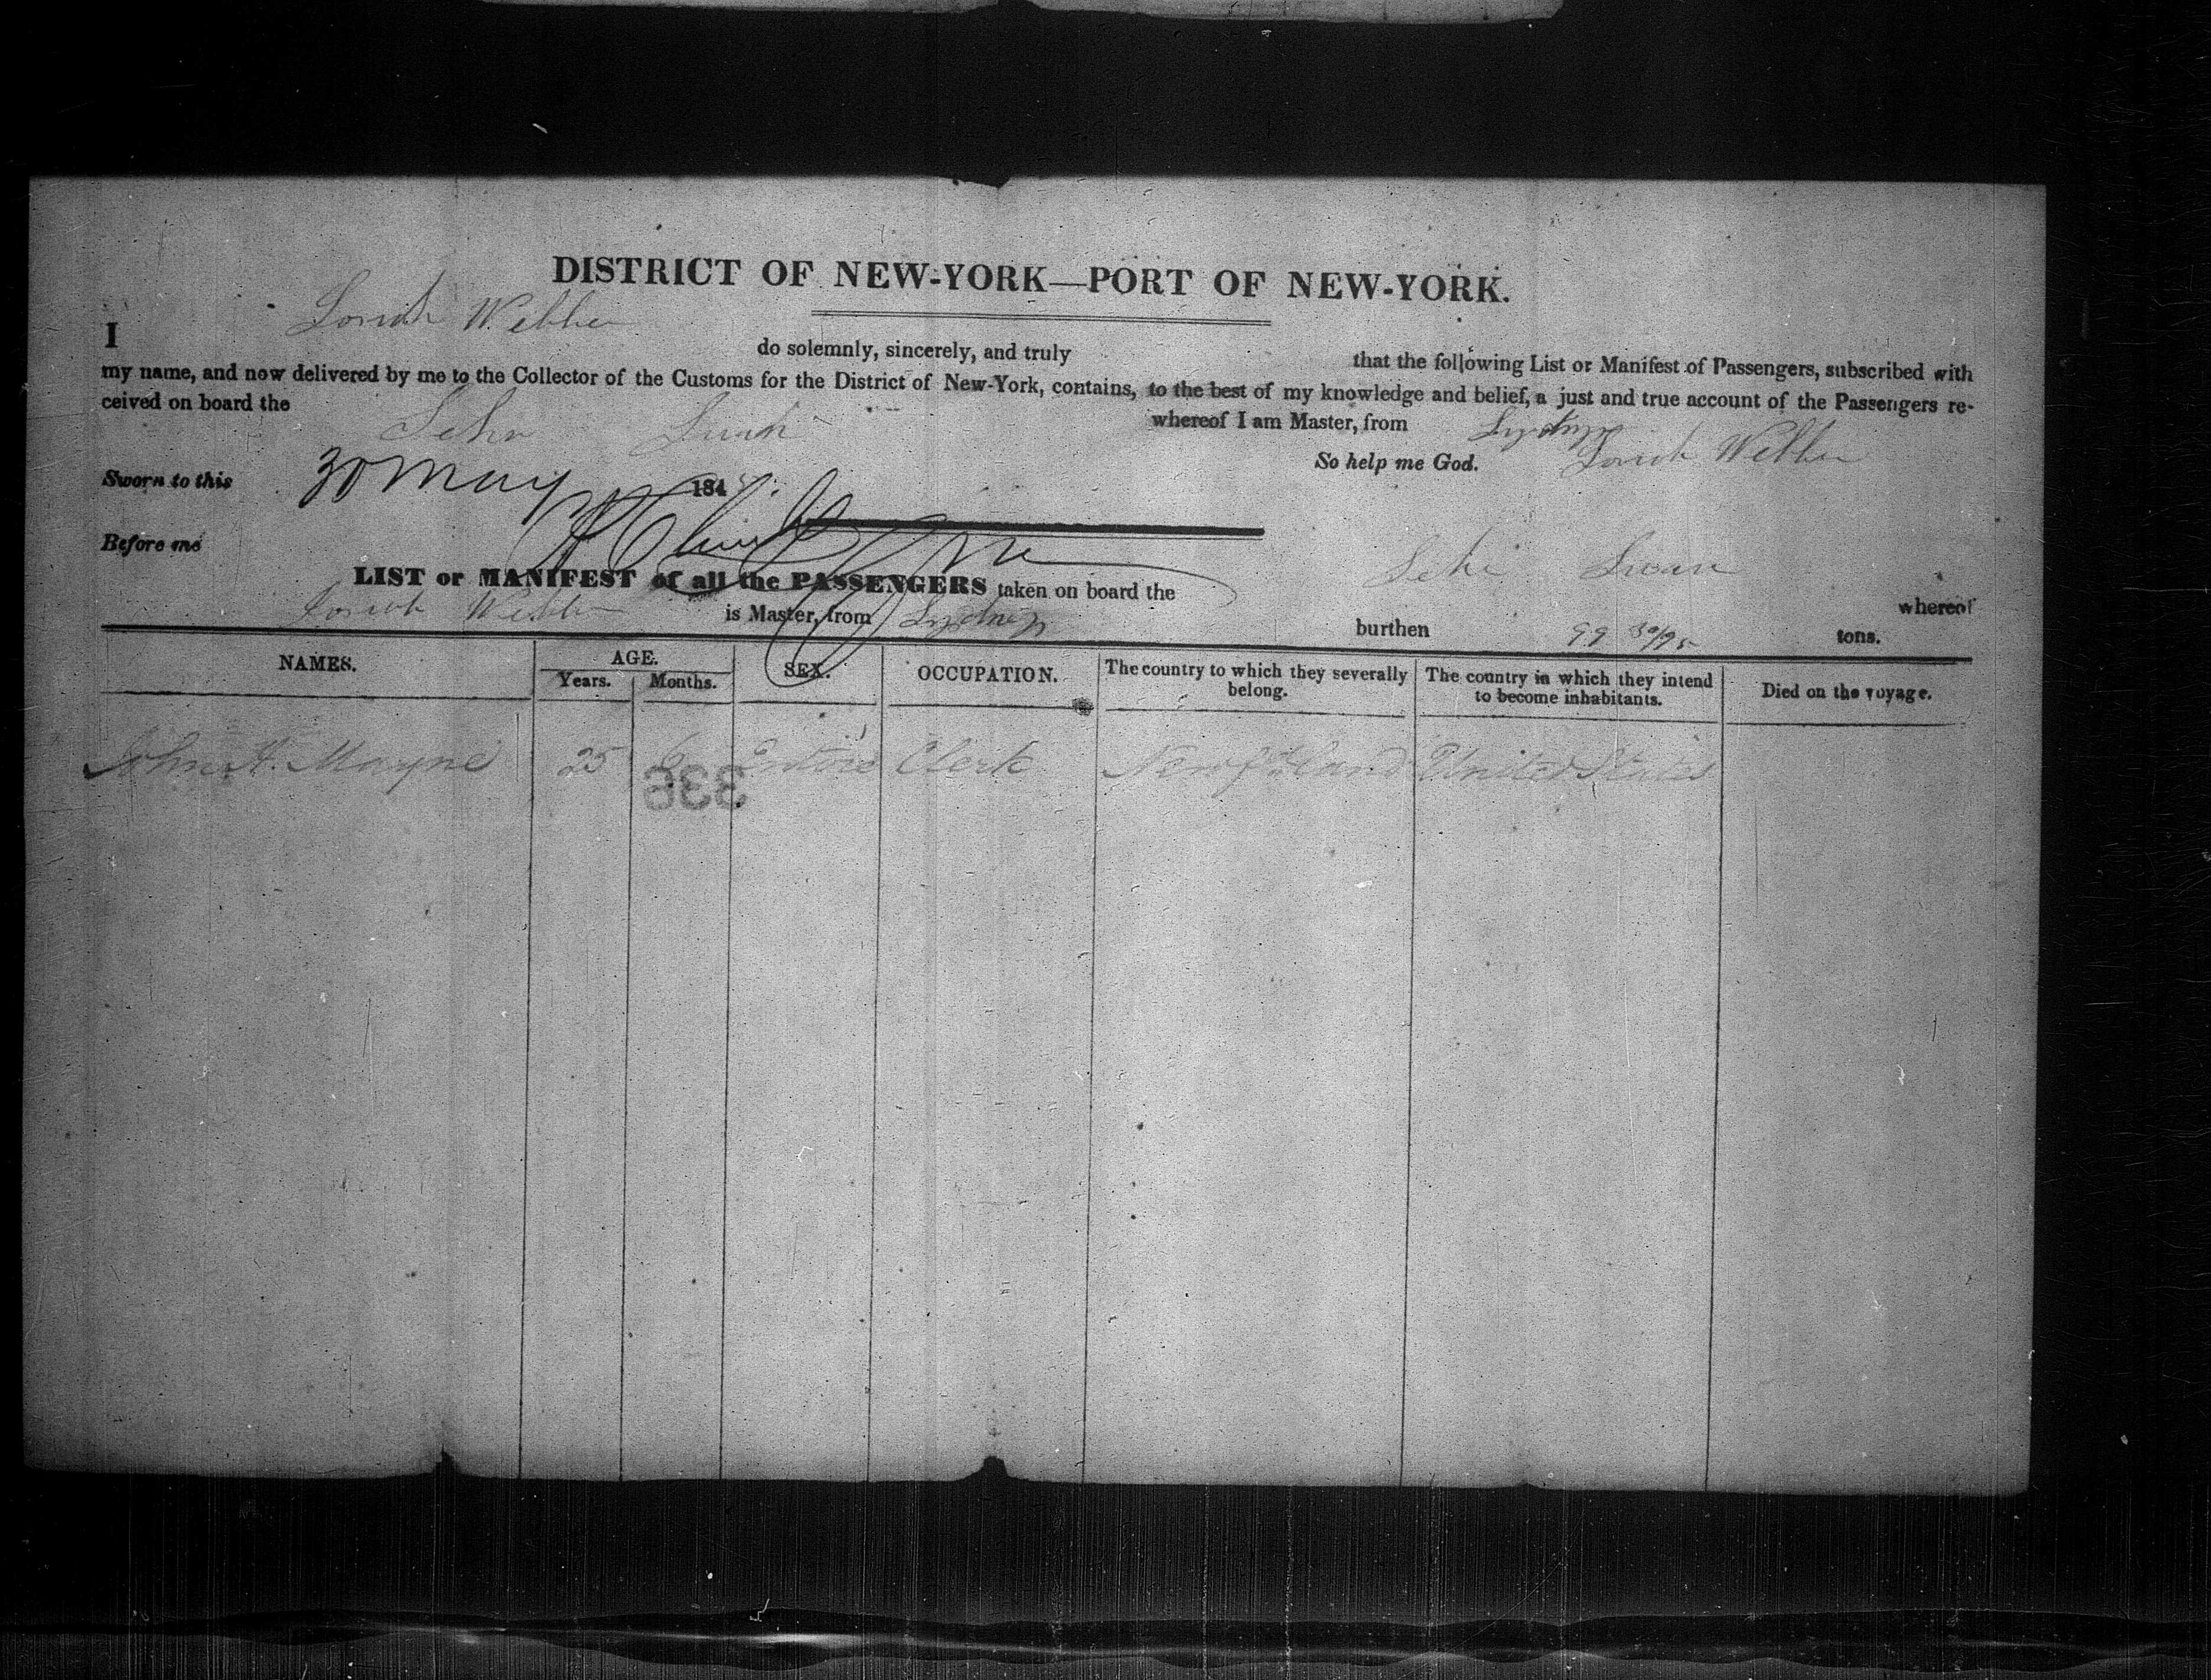 DISTRICT OF NEW-YORK—PORT OF NEW-YORK.
I Josiah Webber do solemnly, sincerely, and truly that the following List or Manifest of Passengers, subscribed with
my name, and now delivered by me to the Collector of the Customs for the District of New-York, contains, to the best of my knowledge and belief, a just and true account of the Passengers re-
ceived on board the Schr Swan whereof I am Master, from Sydney
So help me God. Josiah Webber
Sworn to this 30 May 184
Before me
LIST or MANIFEST of all the PASSENGERS taken on board the Schr Swan whereof
Josiah Webber is Master, from Sydney burthen 99 30/95 tons.
NAMES. AGE. SEX. OCCUPATION. The country to which they severally belong. The country in which they intend to become inhabitants. Died on the voyage.
Years. Months.
John A. Mayne 25 6 Clerk Newfdland United States
336